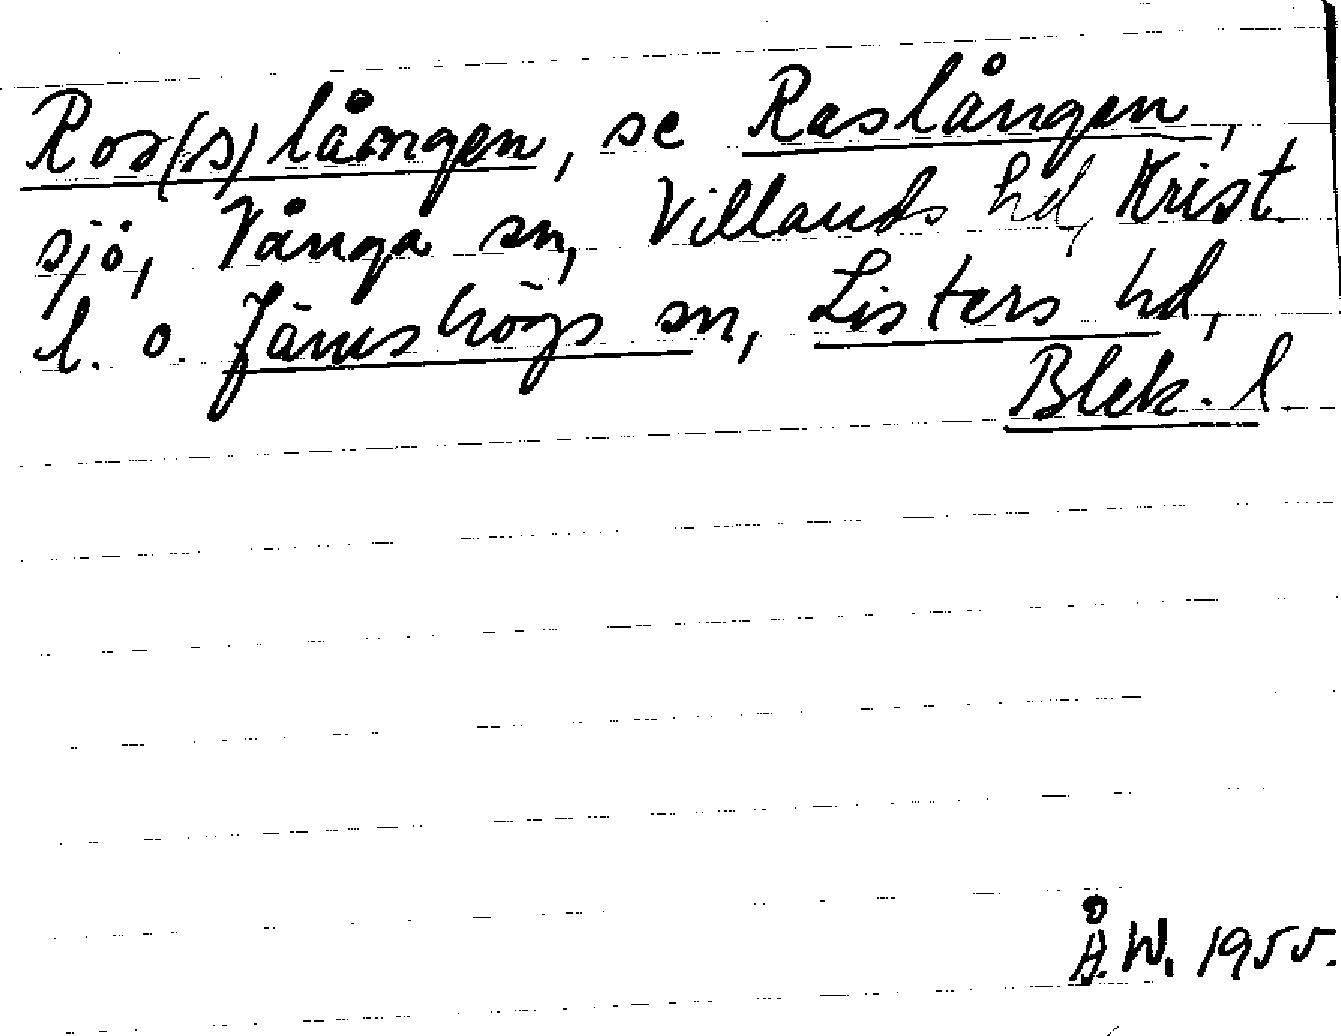 Ros(s)lången, se Raslången,
sjö, Vånga sn, Villands hd, Krist.
l. o. Jämshögs sn, Listers hd,
Blek. l.
Å.W. 1955.